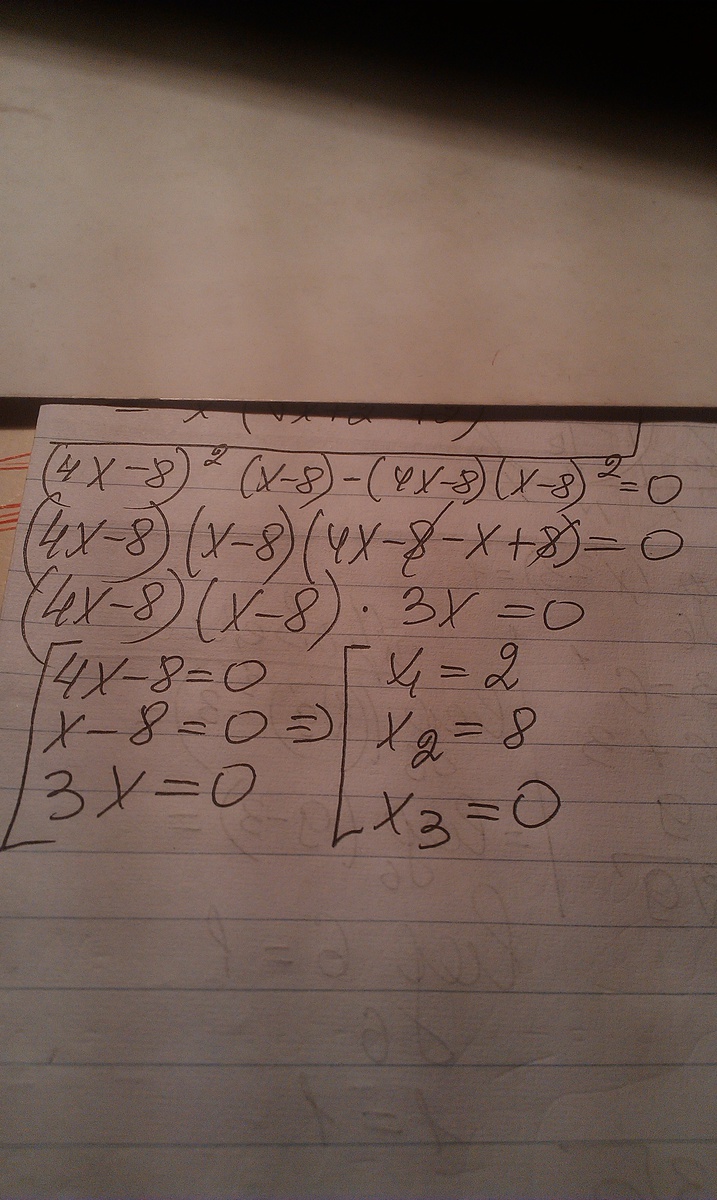 (4x-8)² (x-8)-(4x-8)(x-8)²=0
(4x-8)(x-8)(4x-8-x+8)=0
(4x-8)(x-8)·3x=0
[4x-8=0
x-8=0 ⇒
3x=0
[x₁=2
x₂=8
x₃=0